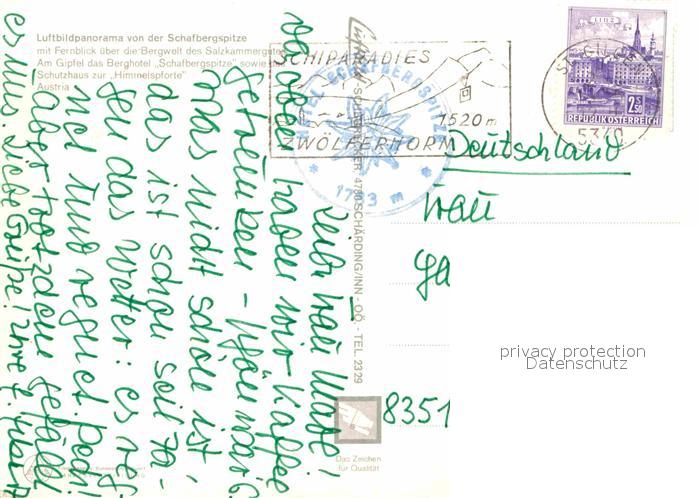 Luftbildpanorama von der Schafbergspitze
mit Fernblick über die Bergwelt des Salzkammergutes
Am Gipfel das Berghotel „Schafbergspitze" sowie
Schutzhaus zur „Himmelspforte"
Austria
SCHIPARADIES
1520 m
ZWÖLFERHORN
HOTEL SCHAFBERGSPITZE
1783 m
LINZ
2.50
REPUBLIK ÖSTERREICH
5340
4780 SCHÄRDING/INN - OÖ. - TEL. 2329
Deutschland
Frau
8351
privacy protection
Datenschutz
Das Zeichen
für Qualität
Liebe Frau
Da oben haben wir Kaffee
getrunken
was nicht schön ist,
das ist schon seit
das Wetter: es
und regnet.
aber trotzdem gefällt
es uns. Liebe Grüße! Ihre